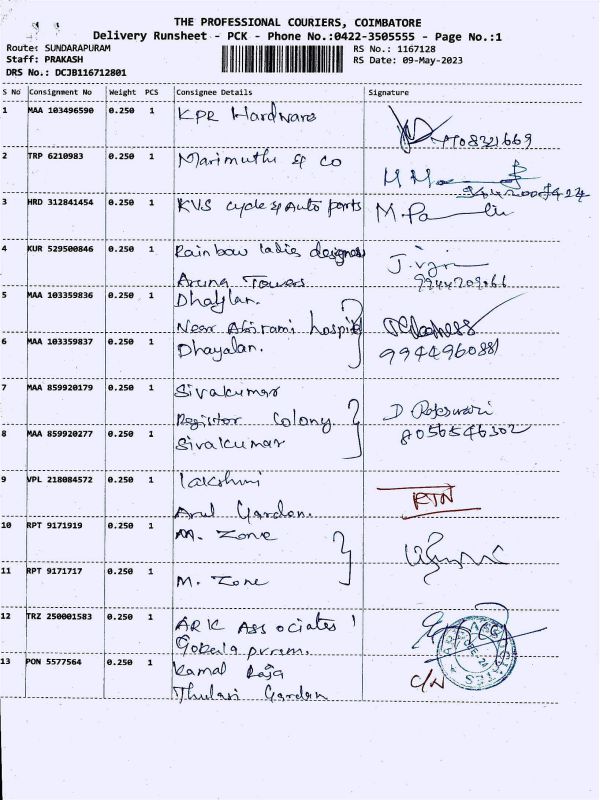 THE PROFESSIONAL COURIERS, COIMBATORE
Delivery Runsheet - PCK - Phone No.:0422-3505555 - Page No.:1
Route: SUNDARAPURAM
RS No.: 1167128
Staff: PRAKASH
RS Date: 09-May-2023
DRS No.: DCJB116712801
S No Consignment No Weight PCS Consignee Details Signature
1 MAA 103496590 0.250 1 KPR Hardware
2 TRP 6210983 0.250 1 Marimuthu & Co
3 HRD 312841454 0.250 1 KVS cycle & Auto parts
4 KUR 529500846 0.250 1 Rainbow ladies designer
Aruna Towers
5 MAA 103359836 0.250 1 Dhaylan.
Near Abirami hospital
9944960881
6 MAA 103359837 0.250 1 Dhayalan.
7 MAA 859920179 0.250 1 Sivakumar
Registor Colony. D Rajeswari
8056546302
8 MAA 859920277 0.250 1 Sivakumar
9 VPL 218084572 0.250 1 Lakshmi
RTN
Arul Garden.
10 RPT 9171919 0.250 1 M. Zone
11 RPT 9171717 0.250 1 M. Zone
12 TRZ 250001583 0.250 1 ARK Associates
Gokulapuram.
13 PON 5577564 0.250 1 Kamal Raja
C/N
Thulasi Garden